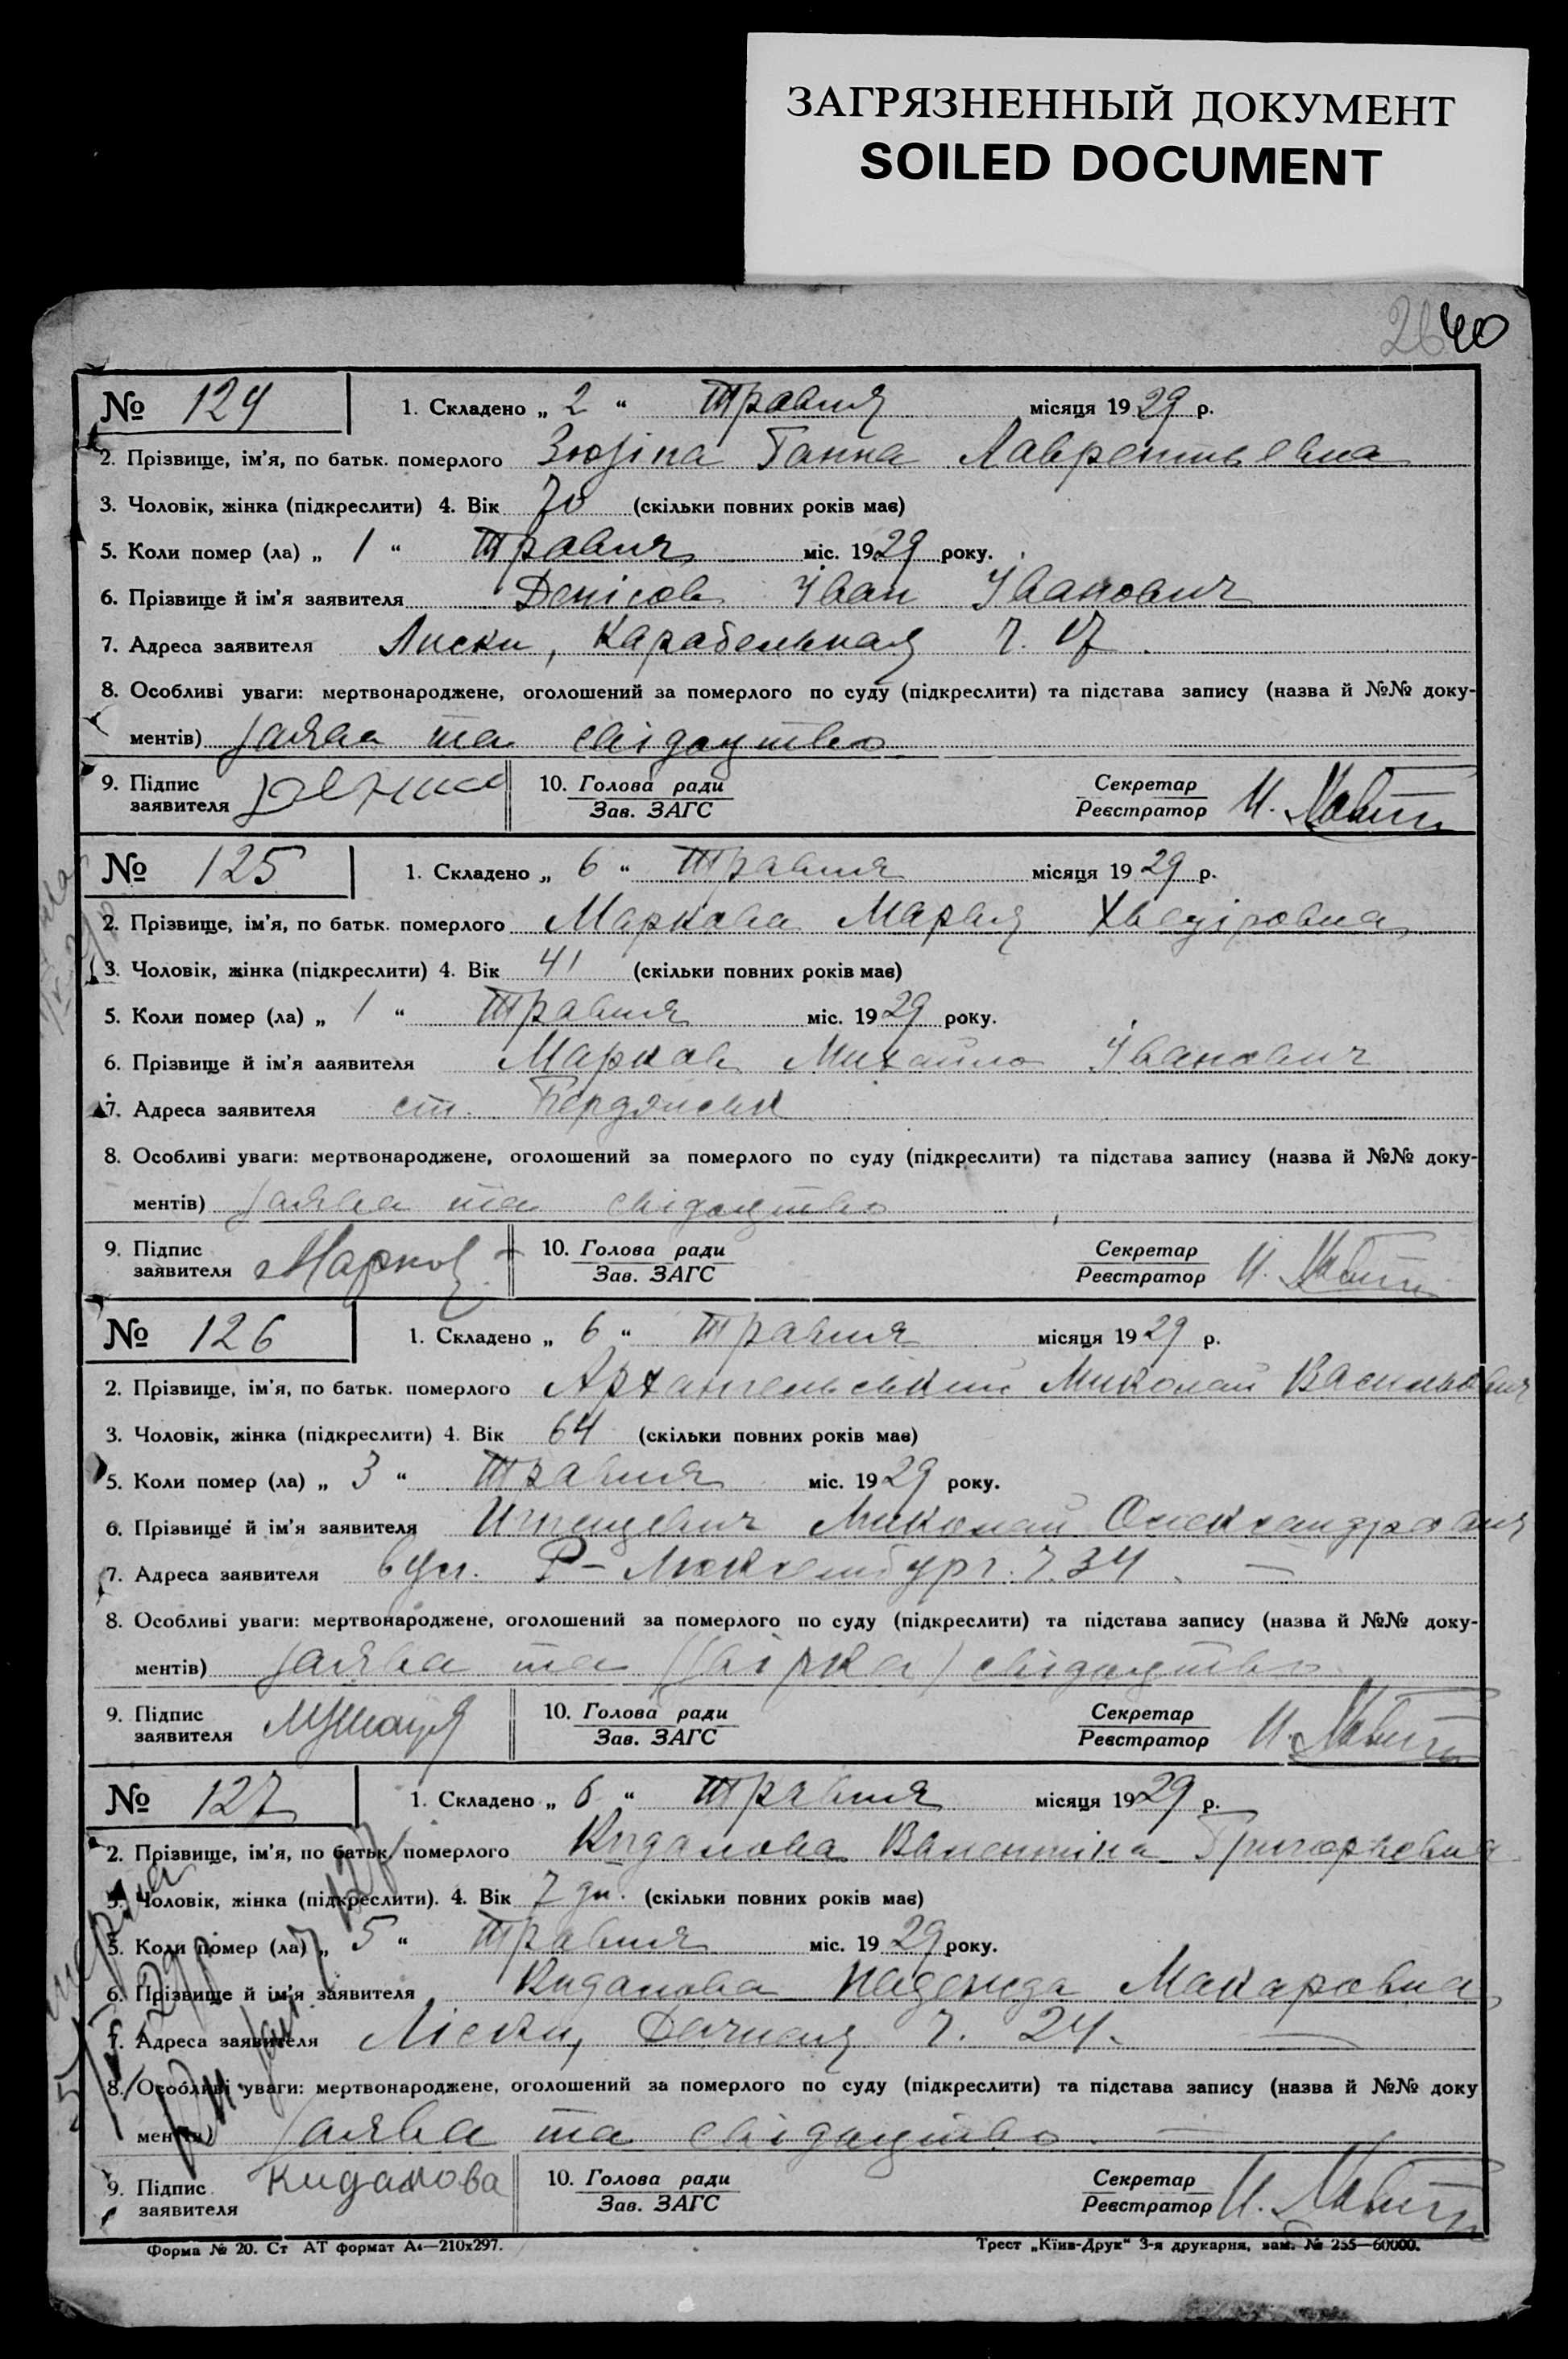 ЗАГРЯЗНЕННЫЙ ДОКУМЕНТ
SOILED DOCUMENT
26 40
№ 124 1. Складено „ 2 “ Травня місяця 1929 р.
2. Прізвище, ім’я, по батьк. померлого Зюзіна Ганна Лаврентьевна
3. Чоловік, жінка (підкреслити) 4. Вік 70 (скільки повних років має)
5. Коли помер (ла) „ 1 “ Травня міс. 1929 року.
6. Прізвище й ім’я заявителя Денісов Іван Іванович
7. Адреса заявителя Лиски, Карабельная ч. 17.
8. Особливі уваги: мертвонароджене, оголошений за померлого по суду (підкреслити) та підстава запису (назва й №№ доку-
ментів) заява та свідоцтво
9. Підпис заявителя 10. Голова ради Зав. ЗАГС Секретар Реєстратор И.
№ 125 1. Складено „ 6 “ Травня місяця 1929 р.
2. Прізвище, ім’я, по батьк. померлого Маркова Марія Хведіровна
3. Чоловік, жінка (підкреслити) 4. Вік 41 (скільки повних років має)
5. Коли помер (ла) „ 1 “ Травня міс. 1929 року.
6. Прізвище й ім’я заявителя Марков Михайло Іванович
7. Адреса заявителя ст. Бердянськ
8. Особливі уваги: мертвонароджене, оголошений за померлого по суду (підкреслити) та підстава запису (назва й №№ доку-
ментів) заява та свідоцтво
9. Підпис заявителя Марков 10. Голова ради Зав. ЗАГС Секретар Реєстратор И.
№ 126 1. Складено „ 6 “ Травня місяця 1929 р.
2. Прізвище, ім’я, по батьк. померлого Архангельський Миколай Васильович
3. Чоловік, жінка (підкреслити) 4. Вік 64 (скільки повних років має)
5. Коли помер (ла) „ 3 “ Травня міс. 1929 року.
6. Прізвище й ім’я заявителя Миколай Олександрович
7. Адреса заявителя вул. Р-Люксембург. ч. 34.
8. Особливі уваги: мертвонароджене, оголошений за померлого по суду (підкреслити) та підстава запису (назва й №№ доку-
ментів) заява та свідоцтво
9. Підпис заявителя 10. Голова ради Зав. ЗАГС Секретар Реєстратор И.
№ 127 1. Складено „ 6 “ Травня місяця 1929 р.
2. Прізвище, ім’я, по батьк. померлого Кидалова Валентіна Григорьевна
3. Чоловік, жінка (підкреслити). 4. Вік 7 дн. (скільки повних років має)
5. Коли помер (ла) „ 5 “ Травня міс. 1929 року.
6. Прізвище й ім’я заявителя Кидалова Надежда Макаровна
7. Адреса заявителя Ліски, ч. 24.
8. Особливі уваги: мертвонароджене, оголошений за померлого по суду (підкреслити) та підстава запису (назва й №№ доку
ментів) заява та свідоцтво
9. Підпис заявителя Кидалова 10. Голова ради Зав. ЗАГС Секретар Реєстратор И.
Форма № 20. Ст АТ формат А4—210х297. Трест „Київ-Друк“ 3-я друкарня, зам. № 255—60000.